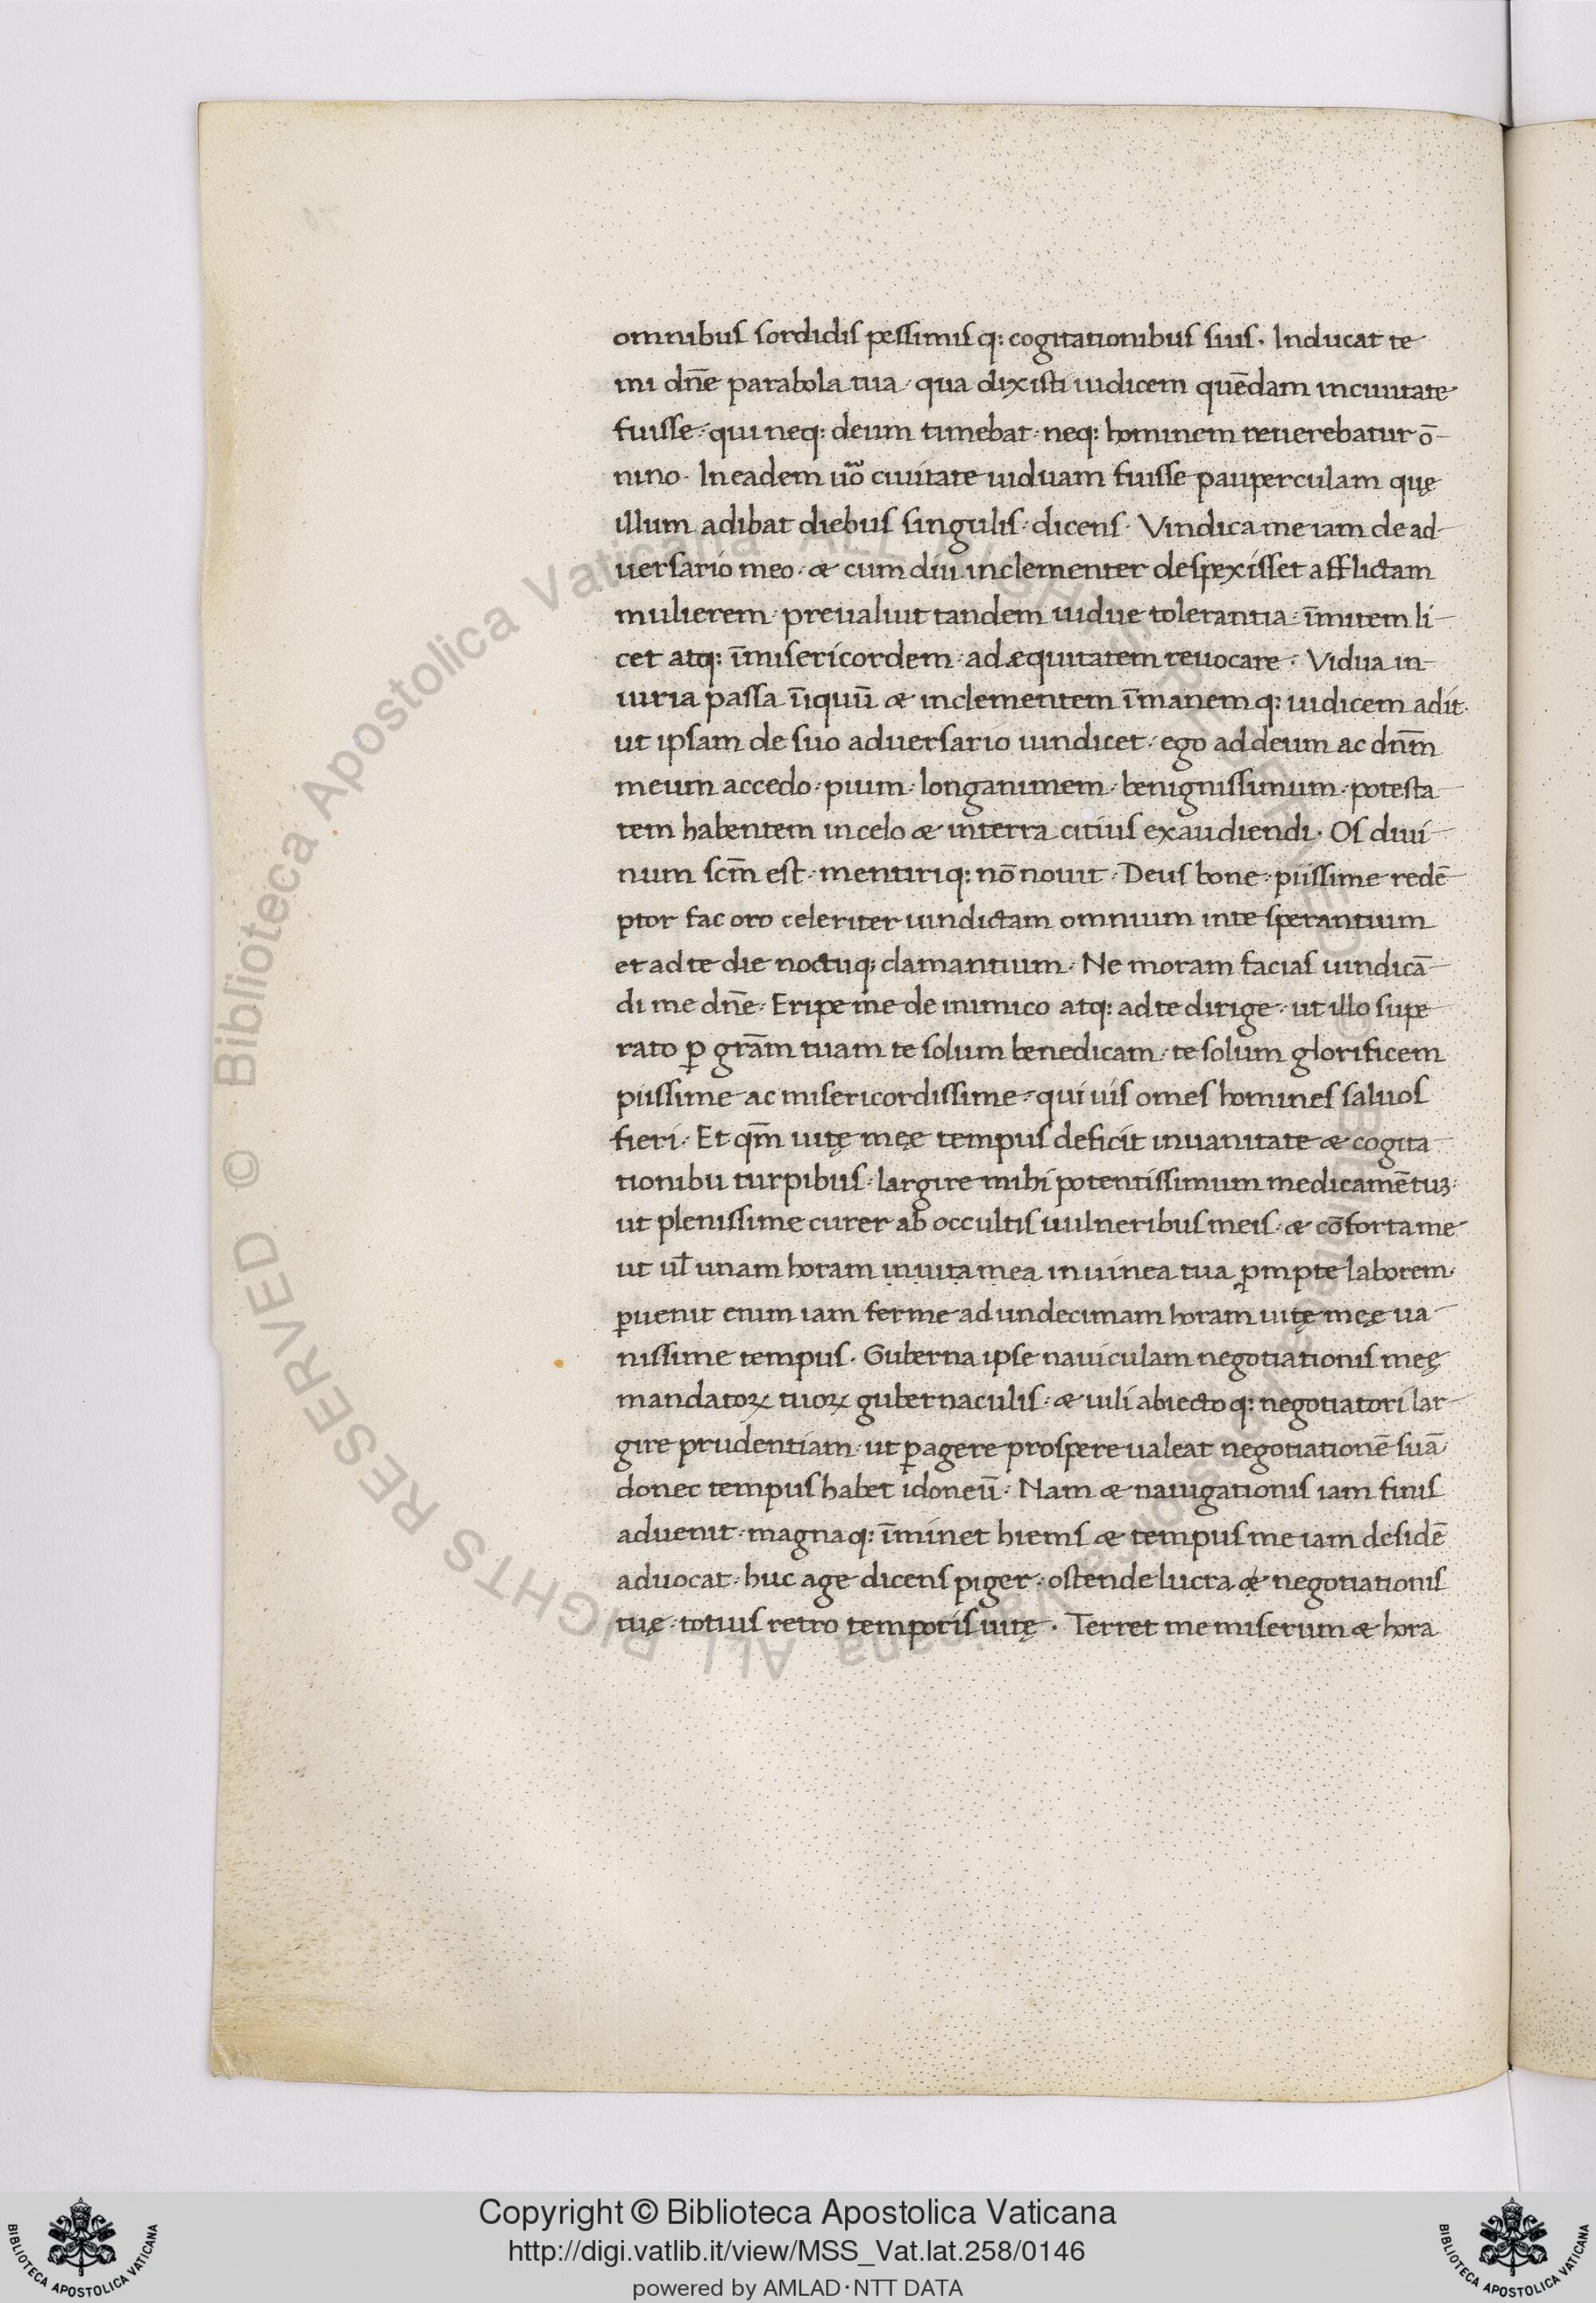 omnibus sordidis pessimisq: cogitationibus suis. Inducat te
mi dn̄e parabola tua · qua dixisti iudicem quēdam inciuitate
fuisse · qui neq: deum timebat · neq: hominem reuerebatur ō-
nino · In eadem uo ciuitate uiduam fuisse pauperculam quę
illum adibat diebus singulis · dicens · Vindica me iam de ad-
uersario meo · & cum diu inclementer despexisset afflictam
mulierem · preualuit tandem uidue tolerantia · īmitem li-
cet atq: īmisericordem · ad æquitatem reuocare · Vidua in-
iuria passa īiquū & inclementem īmanemq: iudicem adit.
ut ipsam de suo aduersario uindicet · ego ad deum ac dn̄m
meum accedo · pium · longanimem · benignissimum · potesta-
tem habentem in celo & interra citius exaudiendi · Os diui-
num scm̄ est · mentiriq: nō nouit · Deus bone · piissime redē-
ptor fac oro celeriter uindictam omnium inte sperantium
et ad te die noctuq; clamantium · Ne moram facias uindicā-
di me dn̄e · Eripe me de inimico atq: ad te dirige · ut illo supe-
rato ꝑ grām tuam te solum benedicam · te solum glorificem
piissime ac misericordissime · qui uis omes homines saluos
fieri · Et qm̄ uitę meę tempus deficit inuanitate & cogita-
tionibu turpibus · largire mihi potentissimum medicamētuꝫ·
ut plenissime curer ab occultis uulneribus meis · & cōforta me
ut ul̄ unam horam in uita mea in uinea tua ꝓmpte laborem·
ꝑuenit enim iam ferme ad undecimam horam uitę meę ua-
nissime tempus · Guberna ipse nauiculam negotiationis meę
mandatoꝝ tuoꝝ gubernaculis · & uili abiectoq: negotiatori lar-
gire prudentiam · ut ꝑagere prospere ualeat negotiationē suā
donec tempus habet idoneū · Nam & nauigationis iam finis
aduenit · magnaq: īminet hiems & tempus me iam desidē
aduocat · huc age dicens piger · ostende lucra & negotiationis
tuę · totius retro temporis uitę · Terret me miserum & hora
Copyright © Biblioteca Apostolica Vaticana
http://digi.vatlib.it/view/MSS_Vat.lat.258/0146
powered by AMLAD·NTT DATA
BIBLIOTECA APOSTOLICA VATICANA
BIBLIOTECA APOSTOLICA VATICANA
© Biblioteca Apostolica Vaticana ALL RIGHTS RESERVED